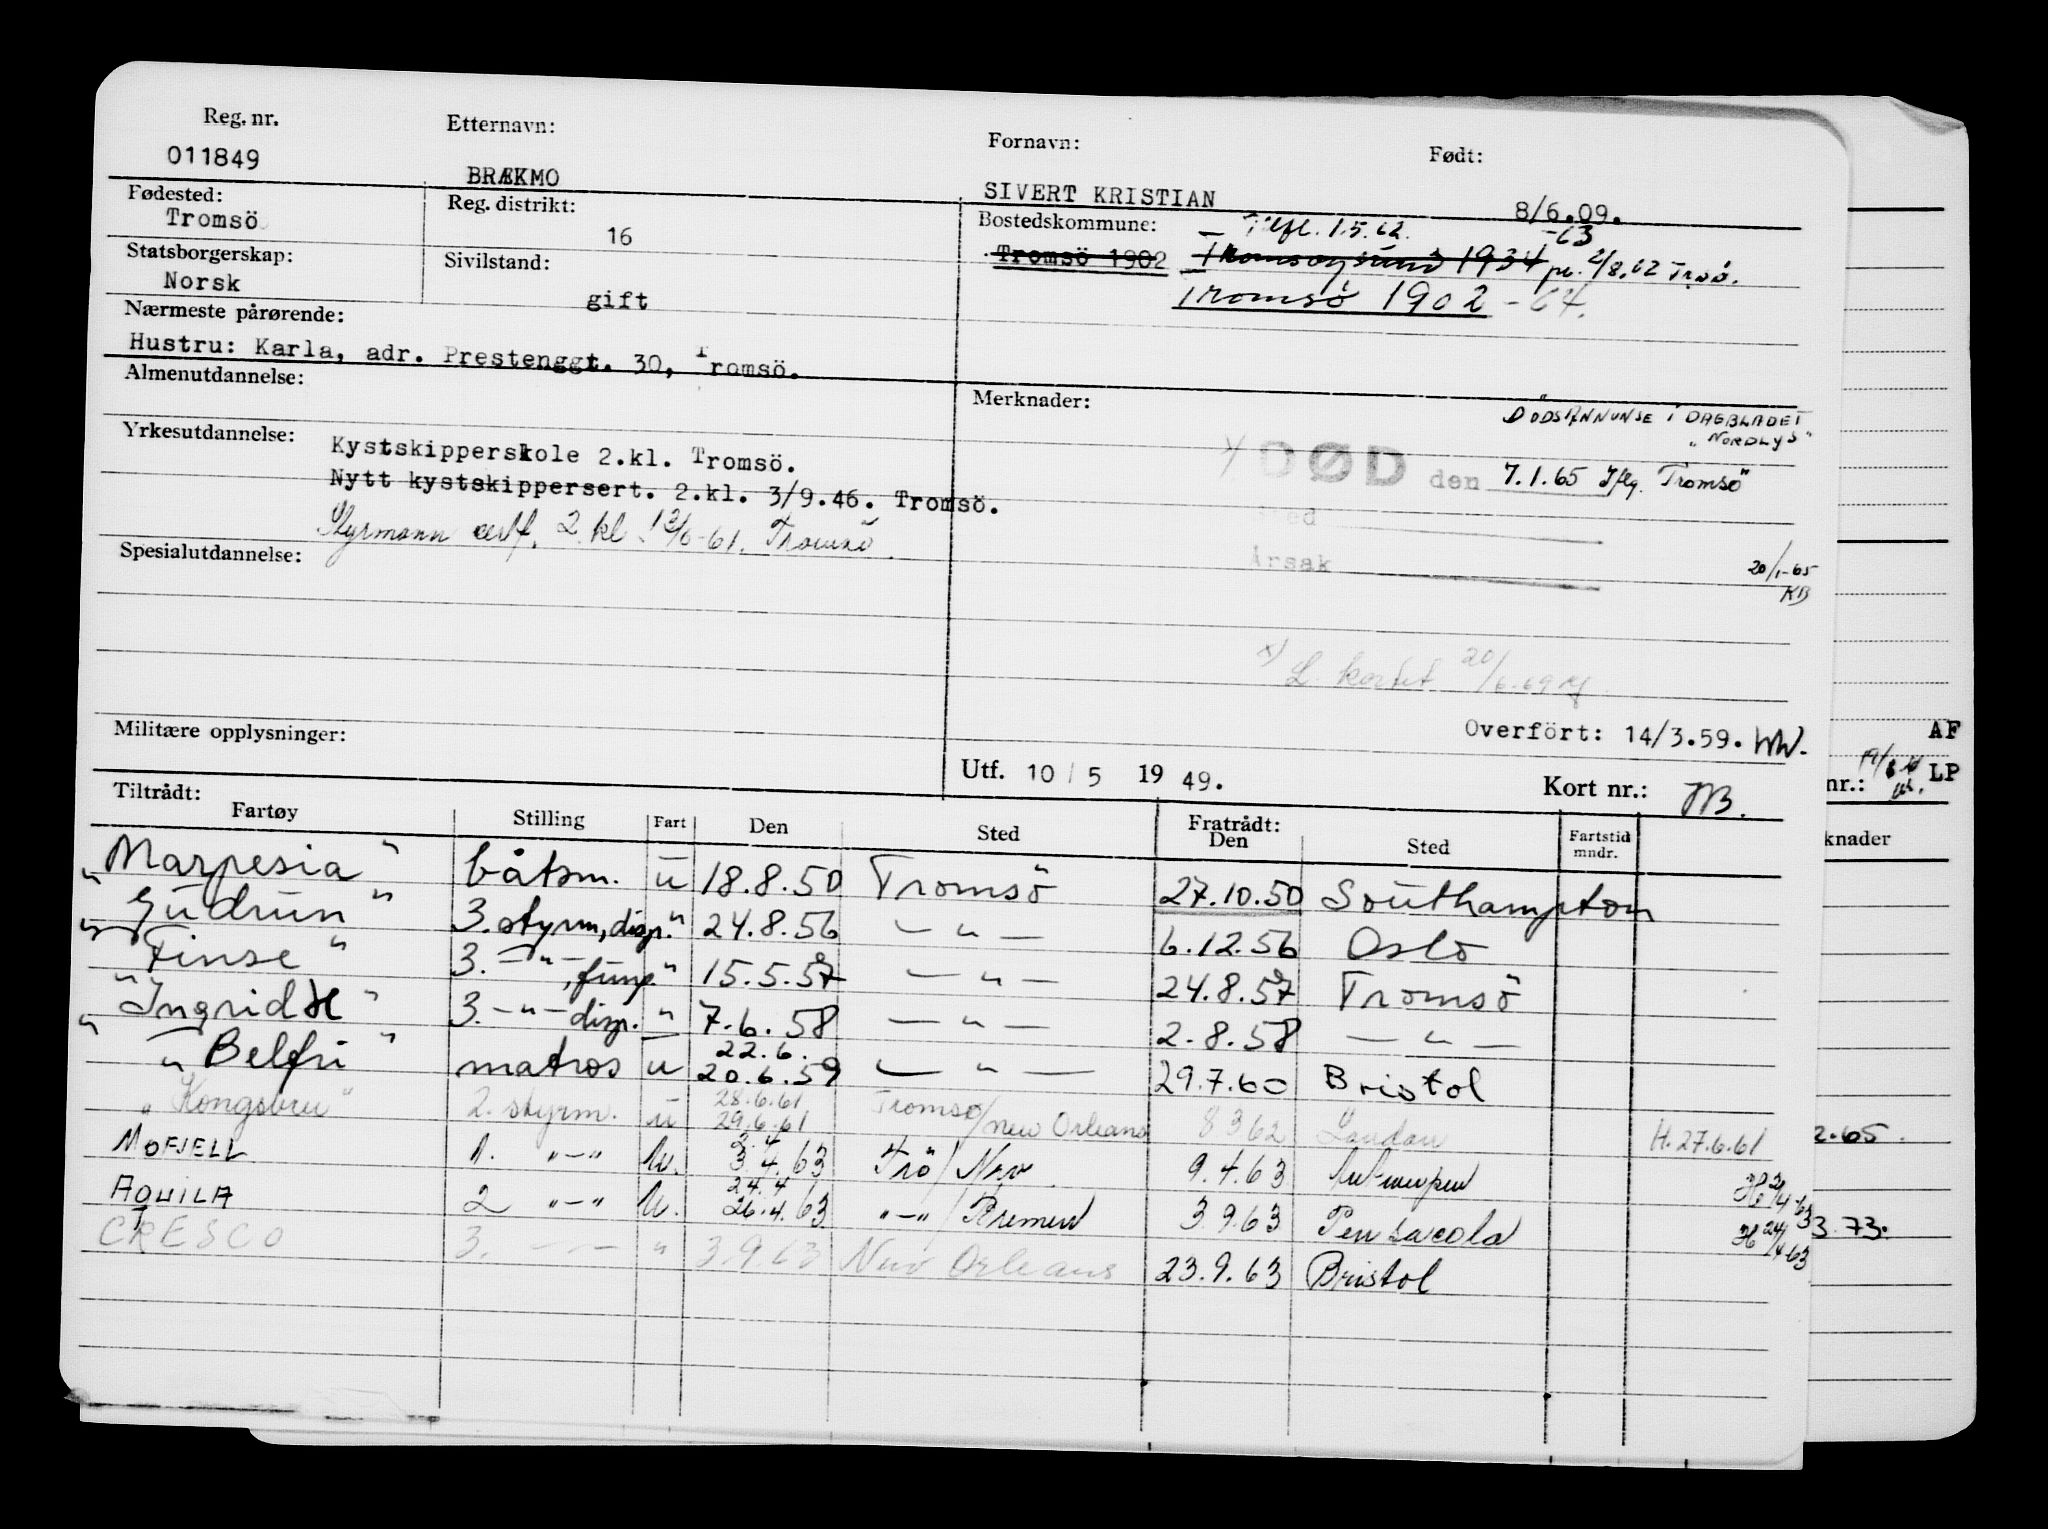 Reg. nr. Etternavn: Fornavn: Født:
011849 BRÆKMO SIVERT KRISTIAN 8/6.09.
Fødested: Reg. distrikt: Bostedskommune: Tilfl. 1.5.62. -63
Tromsö 16 Tromsö 1902 Tromsøysund 1934 pr. 2/8.62 Trsö.
Statsborgerskap: Sivilstand: Tromsö 1902 - 64.
Norsk gift
Nærmeste pårørende:
Hustru: Karla, adr. Prestenggt. 30, Tromsö.
Almenutdannelse: Merknader: DÖDSANNONSE I DAGBLADET
"NORDLYS"
Yrkesutdannelse: Kystskipperskole 2.kl. Tromsö. x) DØD den 7.1.65 Iflg. Tromsö
Nytt kystskippersert. 2.kl. 3/9.46. Tromsö.
Styrmann sertf. 2 kl. Tromsö. Sted
Spesialutdannelse: Årsak 20/1-65
KB
x) L. kortet 20/6.69
Militære opplysninger: Overfört: 14/3.59. WW.
Utf. 10 / 5 19 49. Kort nr.: AF
nr.: LP
Tiltrådt: Fratrådt:
Fartøy Stilling Fart Den Sted Den Sted Fartstid mndr. knader
"Marpesia" båtsm. u 18.8.50 Tromsö 27.10.50 Southampton
"Gudrun" 3. styrm, disp. " 24.8.56 — " — 6.12.56 Oslo
"Finse" 3. — " —, fung. " 15.5.57 — " — 24.8.57 Tromsö
"Ingrid H" 3. — " — disp. " 7.6.58 — " — 2.8.58 — " —
"Belfri" matros u 22.6. 20.6.59 — " — 29.7.60 Bristol
"Kongsbru" 2. styrm. u 28.6.61 29.6.61 Tromsø/New Orleans 8 3 62 London H. 27.6.61 2.65.
MOFJELL 1. "—" U. 2.4 3.4.63 Trö/ 9.4.63 Antwerpen H. 2/4-63
AQUILA 2 "—" U. 24.4 26.4.63 "—"/Bremen 3.9.63 Pensacola H 24/4-63 3.73.
CRESCO 3. — " — " 3.9.63 New Orleans 23.9.63 Bristol